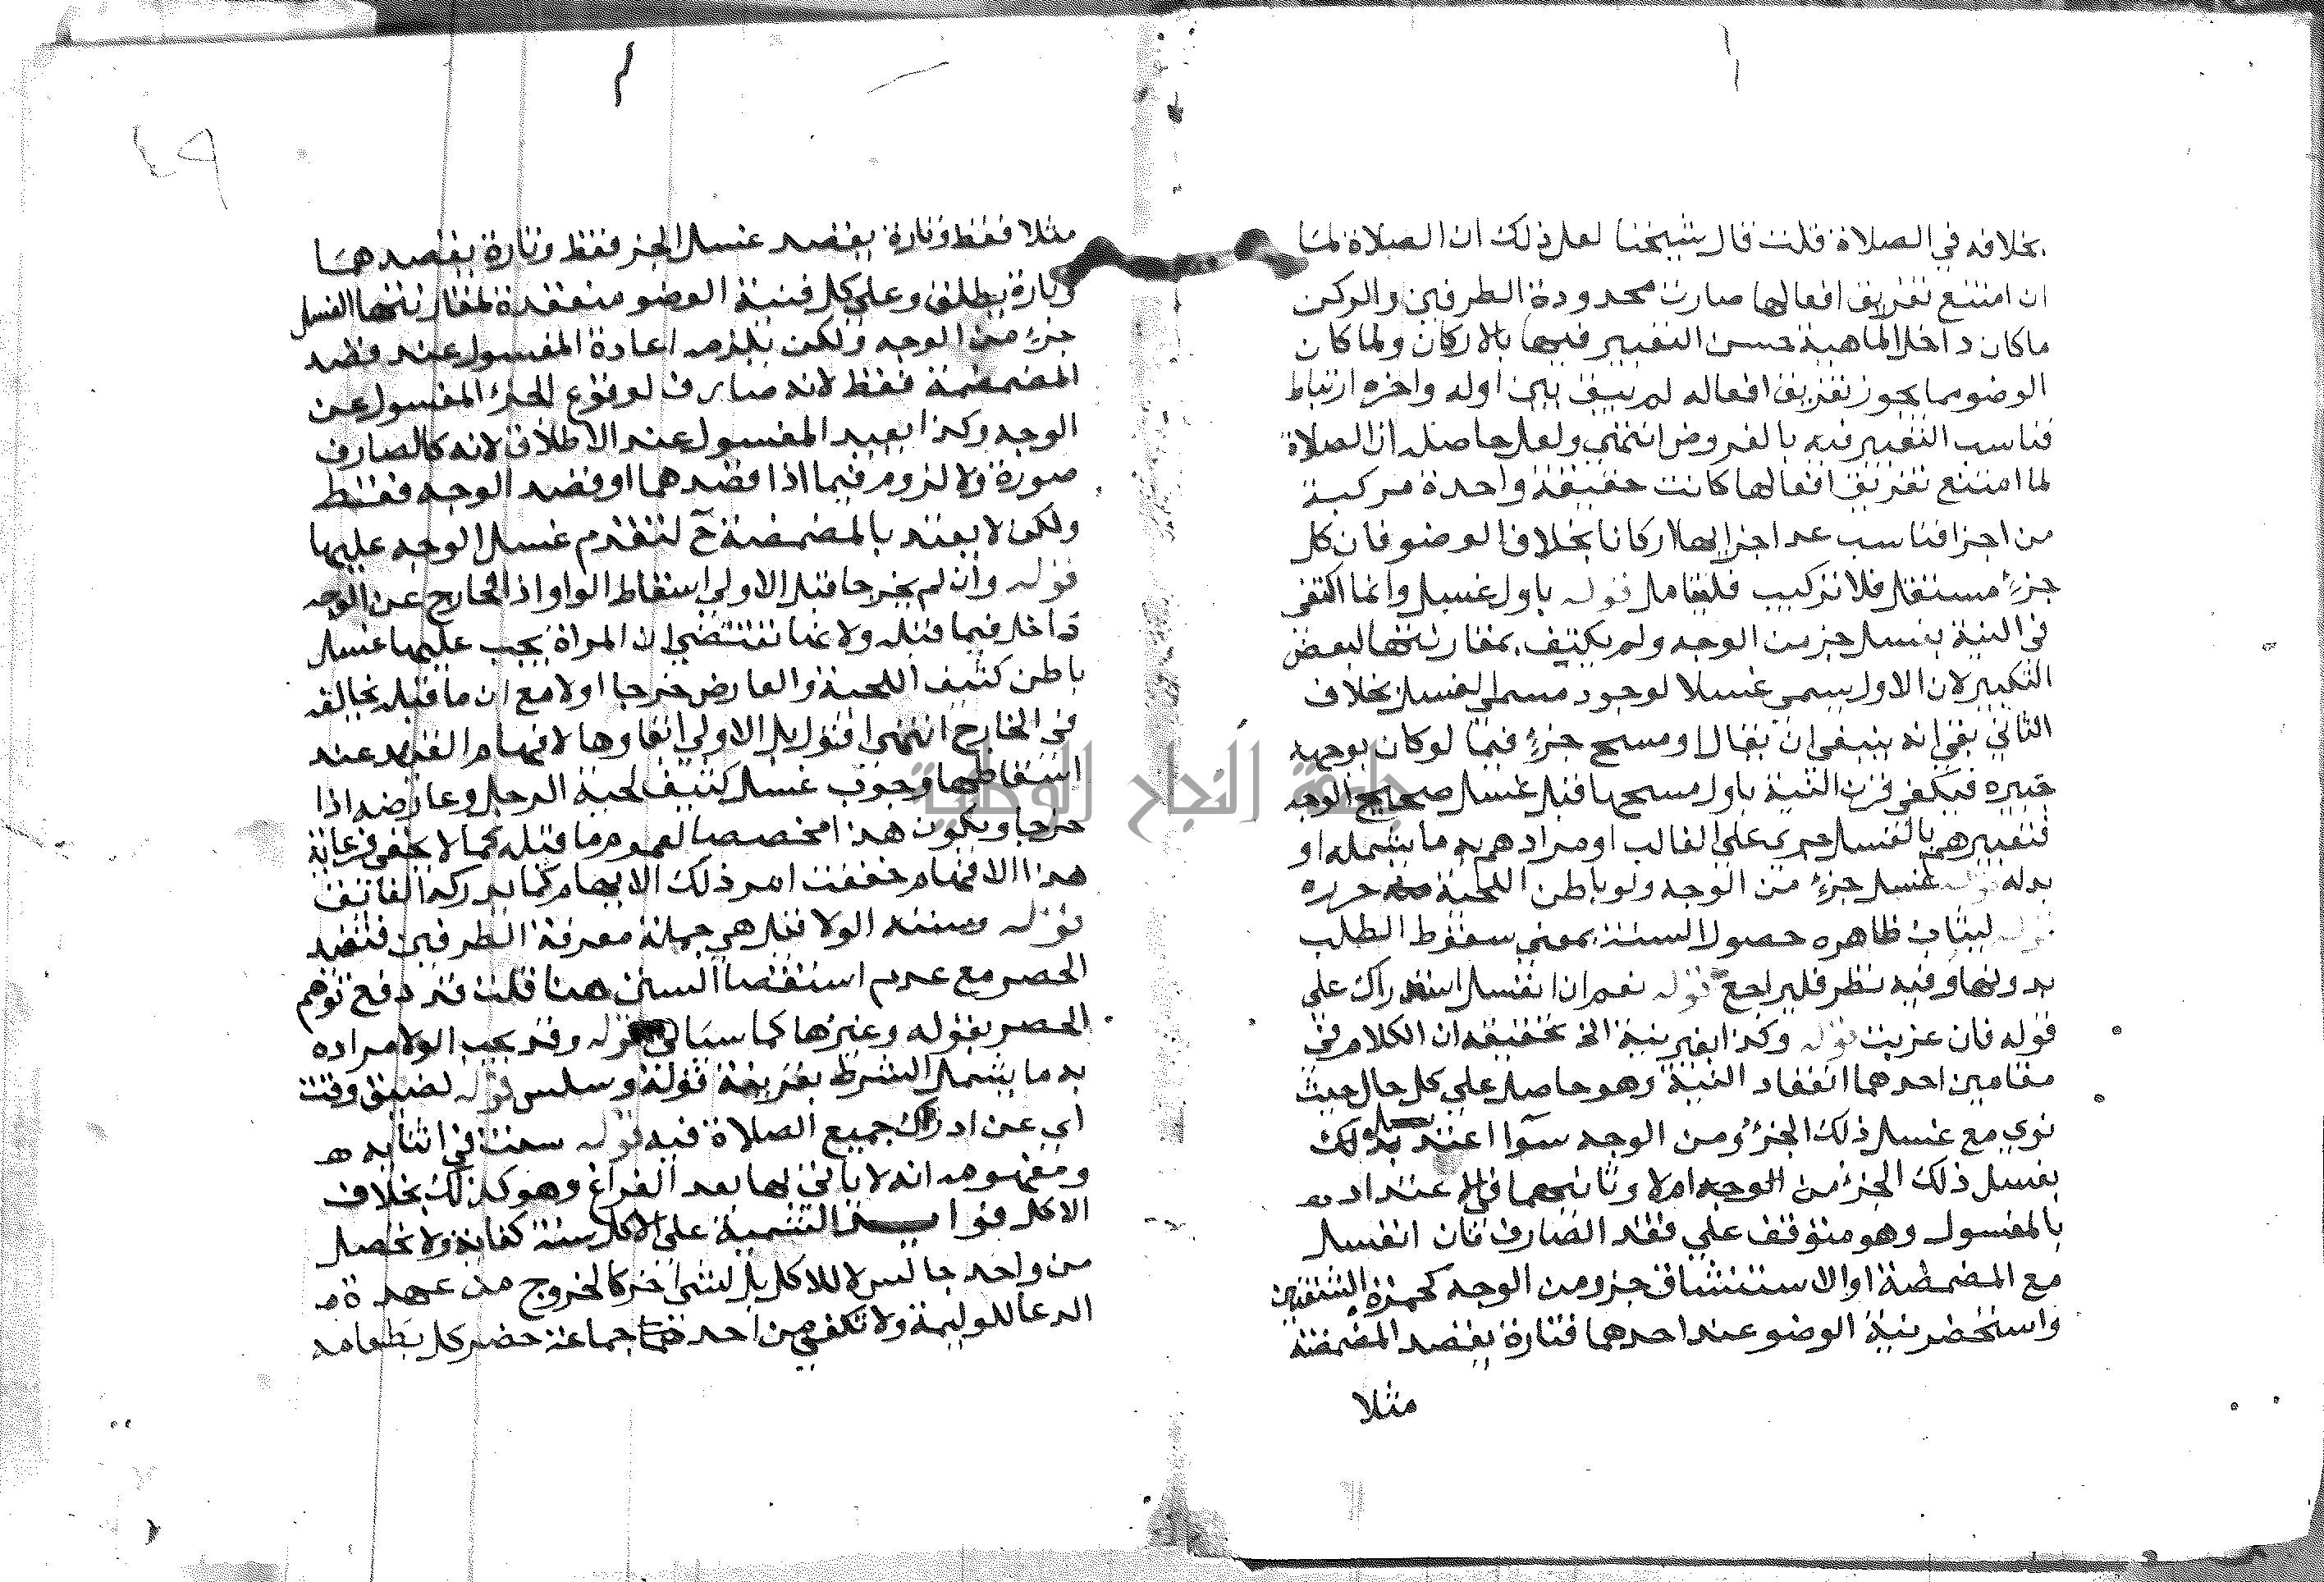 بخلافه في الصلاة قلت قال شيخنا لعل ذلك ان الصلاة لما
ان امتنع تفريق افعالها صارت محدودة الطرفين والركن
ماكان داخل الماهية حسن التعبير فيها بالاركان ولما كان
الوضوء مما يجوز تفريق افعاله لم يبق بين اوله واخره ارتباط
فناسب التعبير فيه بالفروض انتهى ولعل حاصله ان الصلاة
لما امتنع تفريق افعالها كانت حقيقة واحدة مركبة
من اجزا فناسب عد اجزائها اركانا بخلاف الوضو فان كل
جزء مستقل فلا تركيب فليتامل قوله باول غسل وانما اكتفى
في النية بغسل جز من الوجه ولم يكتف بمقارنتها لبعض
التكبير لان الاول يسمى غسلا لوجود مسمى الغسل بخلاف
الثاني بقي انه ينبغي ان يقال او مسح جزء فيما لو كان بوجهه
جبيره فيكفي قرن النية باول مسحها قبل غسل صحيح الوجه
فتعبيرهم بالغسل جرى على الغالب او مرادهم به ما يشمله او
بدله قوله غسل جزء من الوجه ولو باطن اللحية حرره
قوله ليثاب ظاهره حصول السنة بمعنى سقوط الطلب
بدونها وفيه نظر فليراجع قوله نعم ان انغسل استدراك على
قوله فان عزبت قوله وكذا بغير نية الخ تحقيقه ان الكلام في
مقامين احدهما انعقاد النية وهو حاصل على كل حال حيث
نوي مع غسل ذلك الجزء ومن الوجه سوآ اعتد بذلك
بغسل ذلك الجزء من الوجه ام لا وثانيهما في الاعتداد
بالمغسول وهو متوقف على فقد الصارف فان انغسل
مع المضمضة او الاستنشاق جزو من الوجه كحمرة الشفتين
واستحضر نية الوضو عند احدهما فتارة يقصد المضمضة
مثلا
مثلا فقط وتارة يقصد غسل الجز فقط وتارة يقصدهما
وتارة يطلق وعلى كل فنية الوضو منعقدة لمقارنتها الغسل
جزء من الوجه ولكن تلزمه اعادة المغسول عند قصد
المضمضة فقط لانه صارف لوقوع الجزء المغسول عن
الوجه وكذا يعيد المغسول عند الاطلاق لانه كالصارف
صورة ولا لزوم فيما اذا قصدهما او قصد الوجه فقط
ولكن لا يعتد بالمضمضة ح لتقدم غسل الوجه عليها
قوله وان لم يخرجا قبل الاولى اسقاط الواو اذ الخارج عن الوجه
داخل فيما قبله ولانها تقتضي ان المراة يجب عليها غسل
باطن كثيف اللحية والعارض خرجا اولا مع ان ما قبله يخالفه
في الخارج انتهى اقول بل الاولى ابقاوها لافهام القيد عند
اسقاطها وجوب غسل كثيف لحية الرجل وعارضه اذا
خرجا ويكون هذا مخصصا لعموم ما قبله كما لا يخفى فرعاية
هذا الافهام خففت امر ذلك الابهام كما يدركه الفائق
قوله وسننه الولا قيل هي جملة معرفة الطرفين فتفيد
الحصر مع عدم استقصا السنن هنا قلت قد دفع توهم
الحصر بقوله وغيرها كما سياتي قوله وقد يجب الولا مراده
به ما يشمل الشرط بقرينة قوله وسلس قوله لضيق وقت
اي عن ادراك جميع الصلاة فيه قوله سنت في اثنايه
ومفهومه انه لا ياتي بها بعد الفراغ وهو كذلك بخلاف
الاكل التسمية على الاكل سنة كفاية ولا تحصل
من واحد جالس لا للاكل بل لشي اخر كالخروج من عهدة
الدعا للوليمة ولا تكفي من احد جماعة حضر كل بطعامه